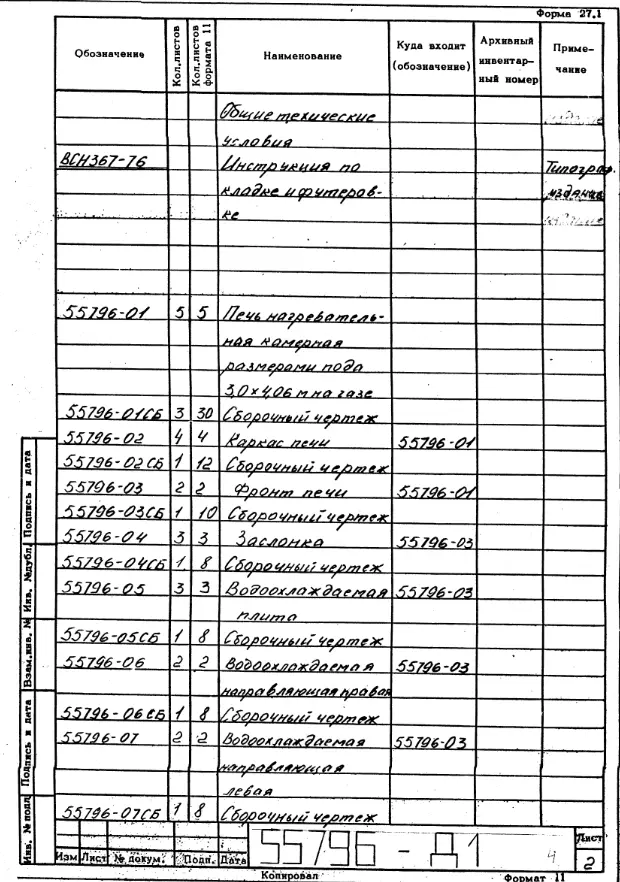 Форма 27.1
Обозначение Кол.листов Кол.листов формата 11 Наименование Куда входит (обозначение) Архивный инвентарный номер Примечание
Общие технические
условия
ВСН367-76 Инструкция по Типограф.
кладке и футеров- издание
ке
55796-01 5 5 Печь нагреватель-
ная камерная
размерами пода
3,0×4,06 м на газе
55796-01СБ 3 30 Сборочный чертеж
55796-02 4 4 Каркас печи 55796-01
55796-02СБ 1 12 Сборочный чертеж
55796-03 2 2 Фронт печи 55796-01
55796-03СБ 1 10 Сборочный чертеж
55796-04 3 3 Заслонка 55796-03
55796-04СБ 1 8 Сборочный чертеж
55796-05 3 3 Водоохлаждаемая 55796-03
плита
55796-05СБ 1 8 Сборочный чертеж
55796-06 2 2 Водоохлаждаемая 55796-03
направляющая правая
55796-06СБ 1 8 Сборочный чертеж
55796-07 2 2 Водоохлаждаемая 55796-03
направляющая
левая
55796-07СБ 1 8 Сборочный чертеж
Подпись и дата
Инв. №дубл.
Взам.инв. №
Подпись и дата
Инв. № подл
Изм Лист № докум. Подп. Дата
55796-Д1 4
Лист
2
Копировал Формат 11